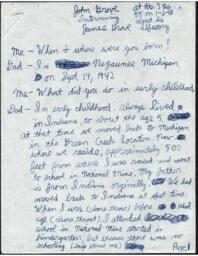 John Grove
Interviewing
James Grove
at
55 on 1-2-
about his
Me - When & where were you born?
Dad - In Negaunee Michigan
on Sept 14, 1942
Me - What did you do in early childhood
Dad - In early childhood, Always lived
in Indiana, to about the age 5,
at that time we moved back to Michigan
in the Green Creek Location. Now
where we reside, approximately 500
feet from where I was raised and went
to school in National Mine. My father
is from Indiana originally. We had
moved back to Indiana at that time
When I was (clears throat) before
age (clears throat), I attended
school in National Mine started in
kindergarten, but because there was no
schooling
Page 1